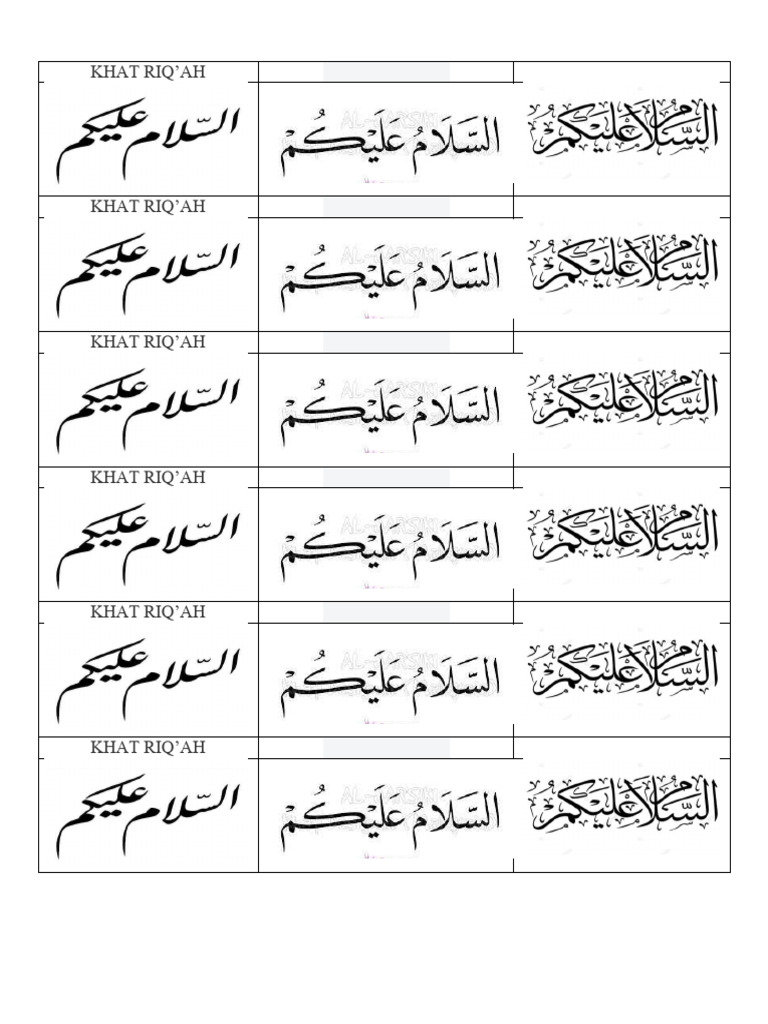 KHAT RIQ’AH
السّلام عليكم السَّلَامُ عَلَيْكُمْ السَّلَامُ عَلَيْكُمْ
KHAT RIQ’AH
السّلام عليكم السَّلَامُ عَلَيْكُمْ السَّلَامُ عَلَيْكُمْ
KHAT RIQ’AH
السّلام عليكم السَّلَامُ عَلَيْكُمْ السَّلَامُ عَلَيْكُمْ
KHAT RIQ’AH
السّلام عليكم السَّلَامُ عَلَيْكُمْ السَّلَامُ عَلَيْكُمْ
KHAT RIQ’AH
السّلام عليكم السَّلَامُ عَلَيْكُمْ السَّلَامُ عَلَيْكُمْ
KHAT RIQ’AH
السّلام عليكم السَّلَامُ عَلَيْكُمْ السَّلَامُ عَلَيْكُمْ